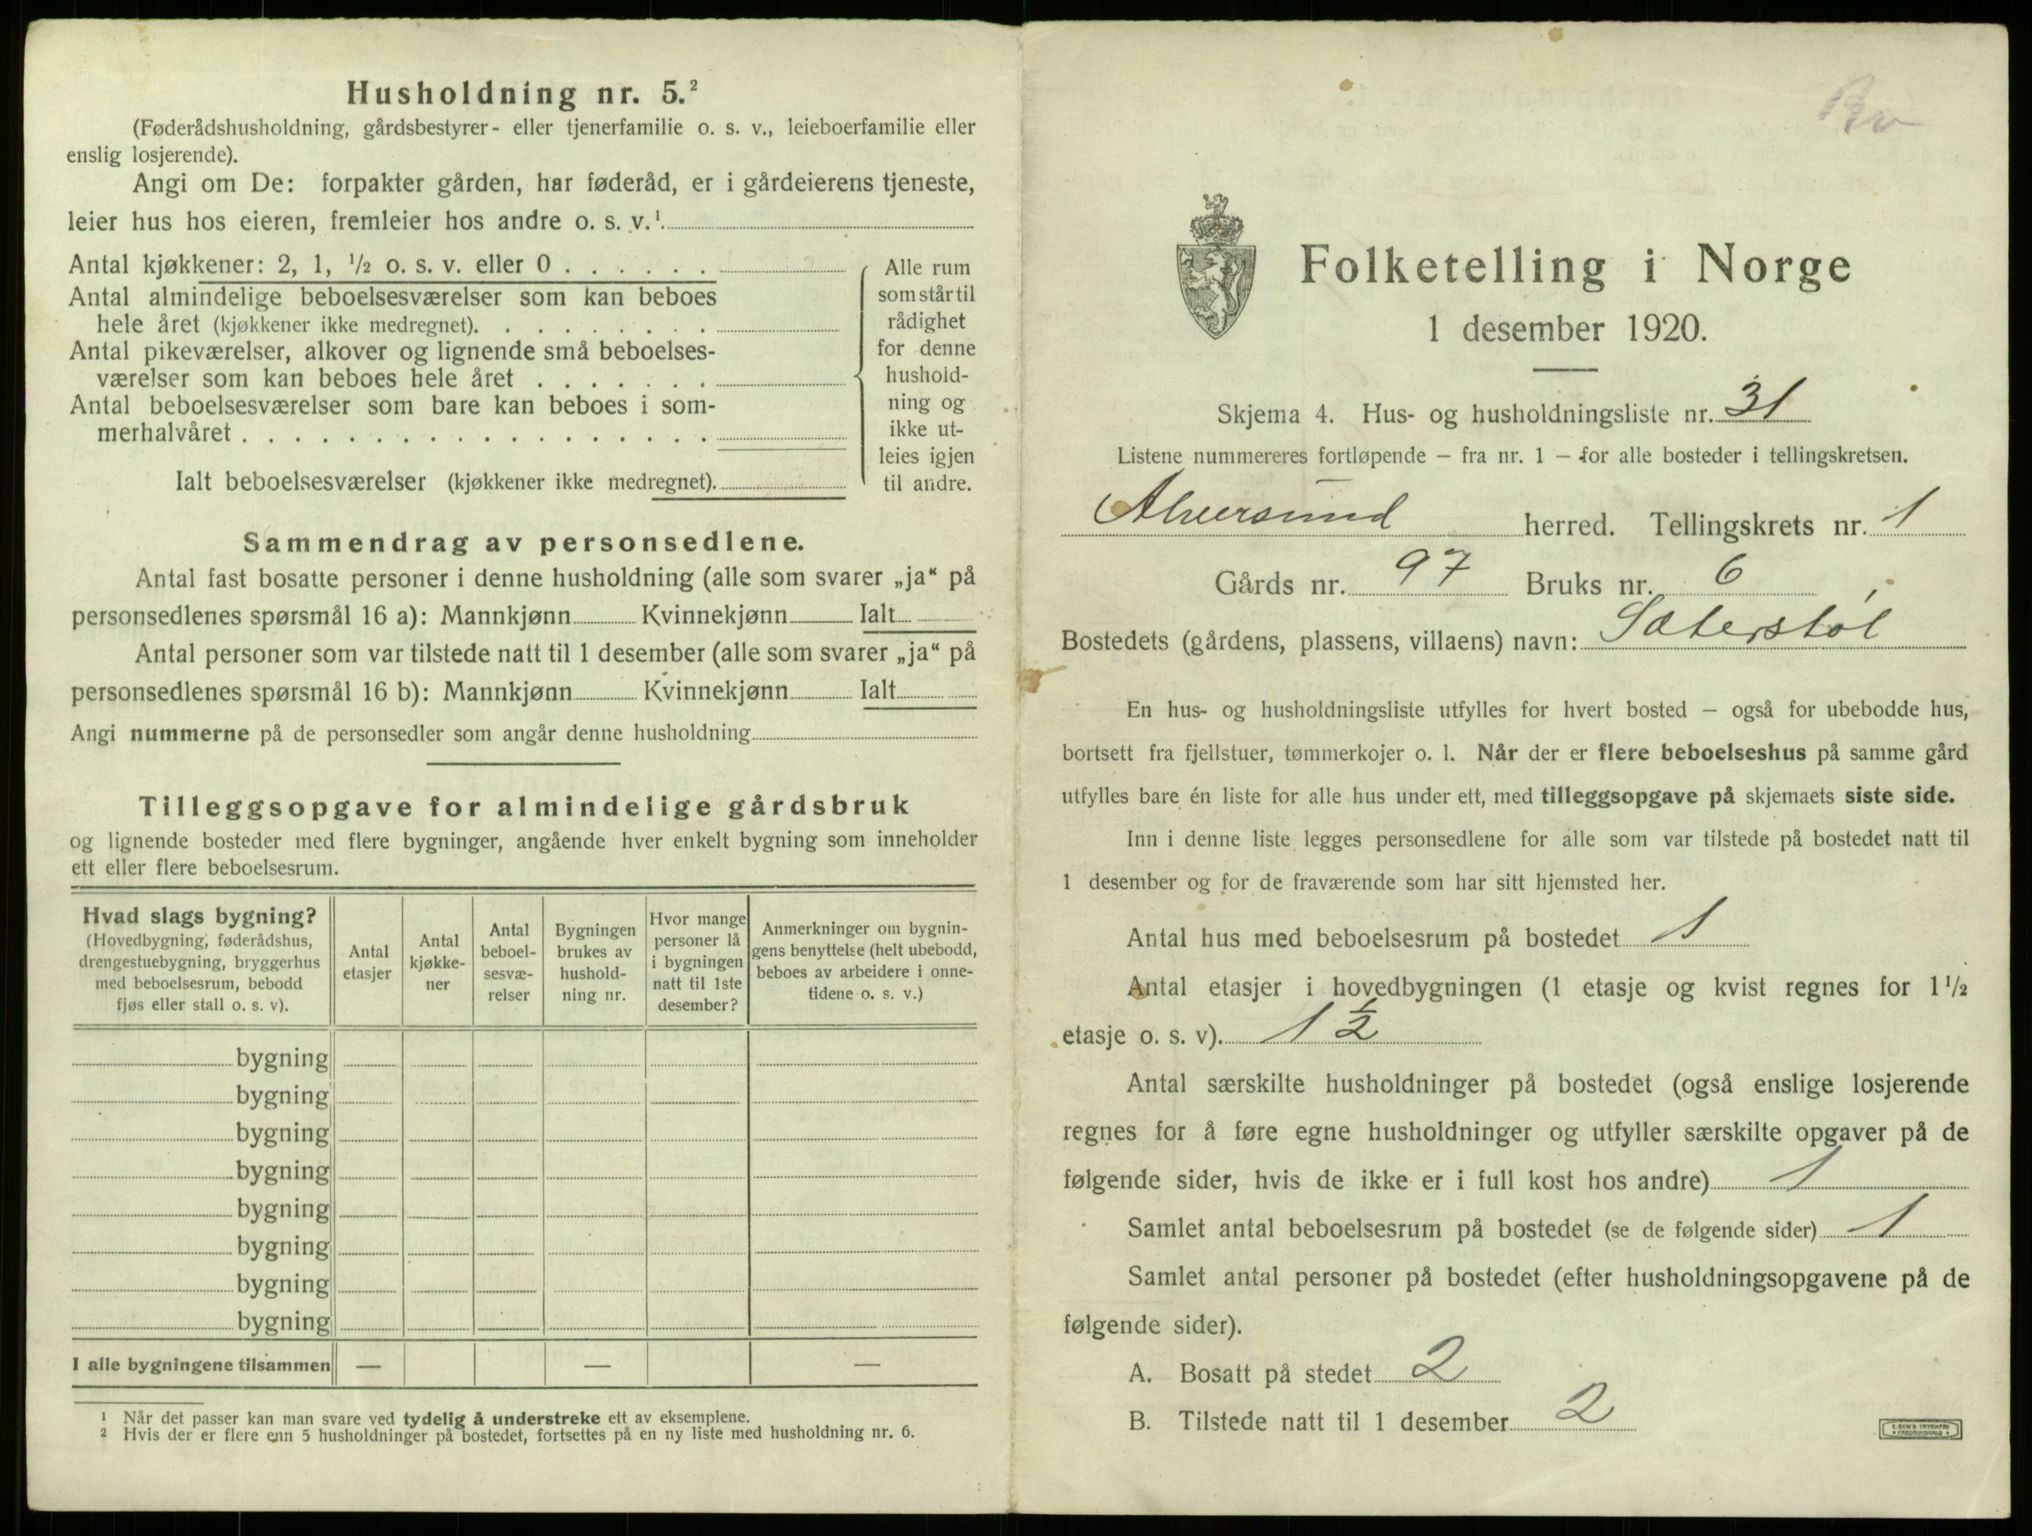 Husholdning nr. 5.²
(Føderådshusholdning, gårdsbestyrer- eller tjenerfamilie o. s. v., leieboerfamilie eller
enslig losjerende).
Angi om De: forpakter gården, har føderåd, er i gårdeierens tjeneste,
leier hus hos eieren, fremleier hos andre o. s. v.¹
Antal kjøkkener: 2, 1, ½ o. s. v. eller 0 . . . . . .
Antal almindelige beboelsesværelser som kan beboes
hele året (kjøkkener ikke medregnet). . . . . . . . .
Antal pikeværelser, alkover og lignende små beboelses-
værelser som kan beboes hele året . . . . . . .
Antal beboelsesværelser som bare kan beboes i som-
merhalvåret . . . . . . . . . . . . . . . . . .
Ialt beboelsesværelser (kjøkkener ikke medregnet).
Alle rum
som står til
rådighet
for denne
hushold-
ning og
ikke ut-
leies igjen
til andre.
Sammendrag av personsedlene.
Antal fast bosatte personer i denne husholdning (alle som svarer „ja“ på
personsedlenes spørsmål 16 a): Mannkjønn Kvinnekjønn Ialt
Antal personer som var tilstede natt til 1 desember (alle som svarer „ja“ på
personsedlenes spørsmål 16 b): Mannkjønn Kvinnekjønn Ialt
Angi nummerne på de personsedler som angår denne husholdning
Tilleggsopgave for almindelige gårdsbruk
og lignende bosteder med flere bygninger, angående hver enkelt bygning som inneholder
ett eller flere beboelsesrum.
Hvad slags bygning?
(Hovedbygning, føderådshus,
drengestuebygning, bryggerhus
med beboelsesrum, bebodd
fjøs eller stall o. s. v).
Antal
etasjer
Antal
kjøkke-
ner
Antal
beboel-
sesvæ-
relser
Bygningen
brukes av
hushold-
ning nr.
Hvor mange
personer lå
i bygningen
natt til 1ste
desember?
Anmerkninger om bygnin-
gens benyttelse (helt ubebodd,
beboes av arbeidere i onne-
tidene o. s. v.)
bygning
bygning
bygning
bygning
bygning
bygning
bygning
bygning
I alle bygningene tilsammen — — —
¹ Når det passer kan man svare ved tydelig å understreke ett av eksemplene.
² Hvis der er flere enn 5 husholdninger på bostedet, fortsettes på en ny liste med husholdning nr. 6.
Folketelling i Norge
1 desember 1920.
Skjema 4. Hus- og husholdningsliste nr. 31
Listene nummereres fortløpende – fra nr. 1 – for alle bosteder i tellingskretsen.
Alversund herred. Tellingskrets nr. 1
Gårds nr. 97 Bruks nr. 6
Bostedets (gårdens, plassens, villaens) navn: Sæterstøl
En hus- og husholdningsliste utfylles for hvert bosted – også for ubebodde hus,
bortsett fra fjellstuer, tømmerkojer o. l. Når der er flere beboelseshus på samme gård
utfylles bare én liste for alle hus under ett, med tilleggsopgave på skjemaets siste side.
Inn i denne liste legges personsedlene for alle som var tilstede på bostedet natt til
1 desember og for de fraværende som har sitt hjemsted her.
Antal hus med beboelsesrum på bostedet 1
Antal etasjer i hovedbygningen (1 etasje og kvist regnes for 1½
etasje o. s. v). 1½
Antal særskilte husholdninger på bostedet (også enslige losjerende
regnes for å føre egne husholdninger og utfyller særskilte opgaver på de
følgende sider, hvis de ikke er i full kost hos andre) 1
Samlet antal beboelsesrum på bostedet (se de følgende sider) 1
Samlet antal personer på bostedet (efter husholdningsopgavene på de
følgende sider).
A. Bosatt på stedet 2
B. Tilstede natt til 1 desember 2